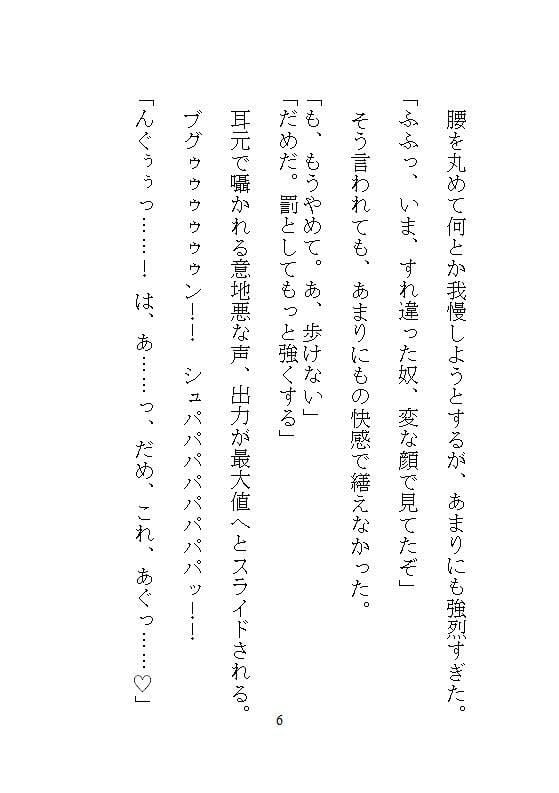 腰を丸めて何とか我慢しようとするが、あまりにも強烈すぎた。
「ふふっ、いま、すれ違った奴、変な顔で見てたぞ」
そう言われても、あまりにもの快感で繕えなかった。
「も、もうやめて。あ、歩けない」
「だめだ。罰としてもっと強くする」
耳元で囁かれる意地悪な声、出力が最大値へとスライドされる。
ブグゥゥゥゥゥン!! シュパパパパパパパパッ!!
「んぐぅぅっ……! は、あ……っ、だめ、これ、あぐっ……♡」
6